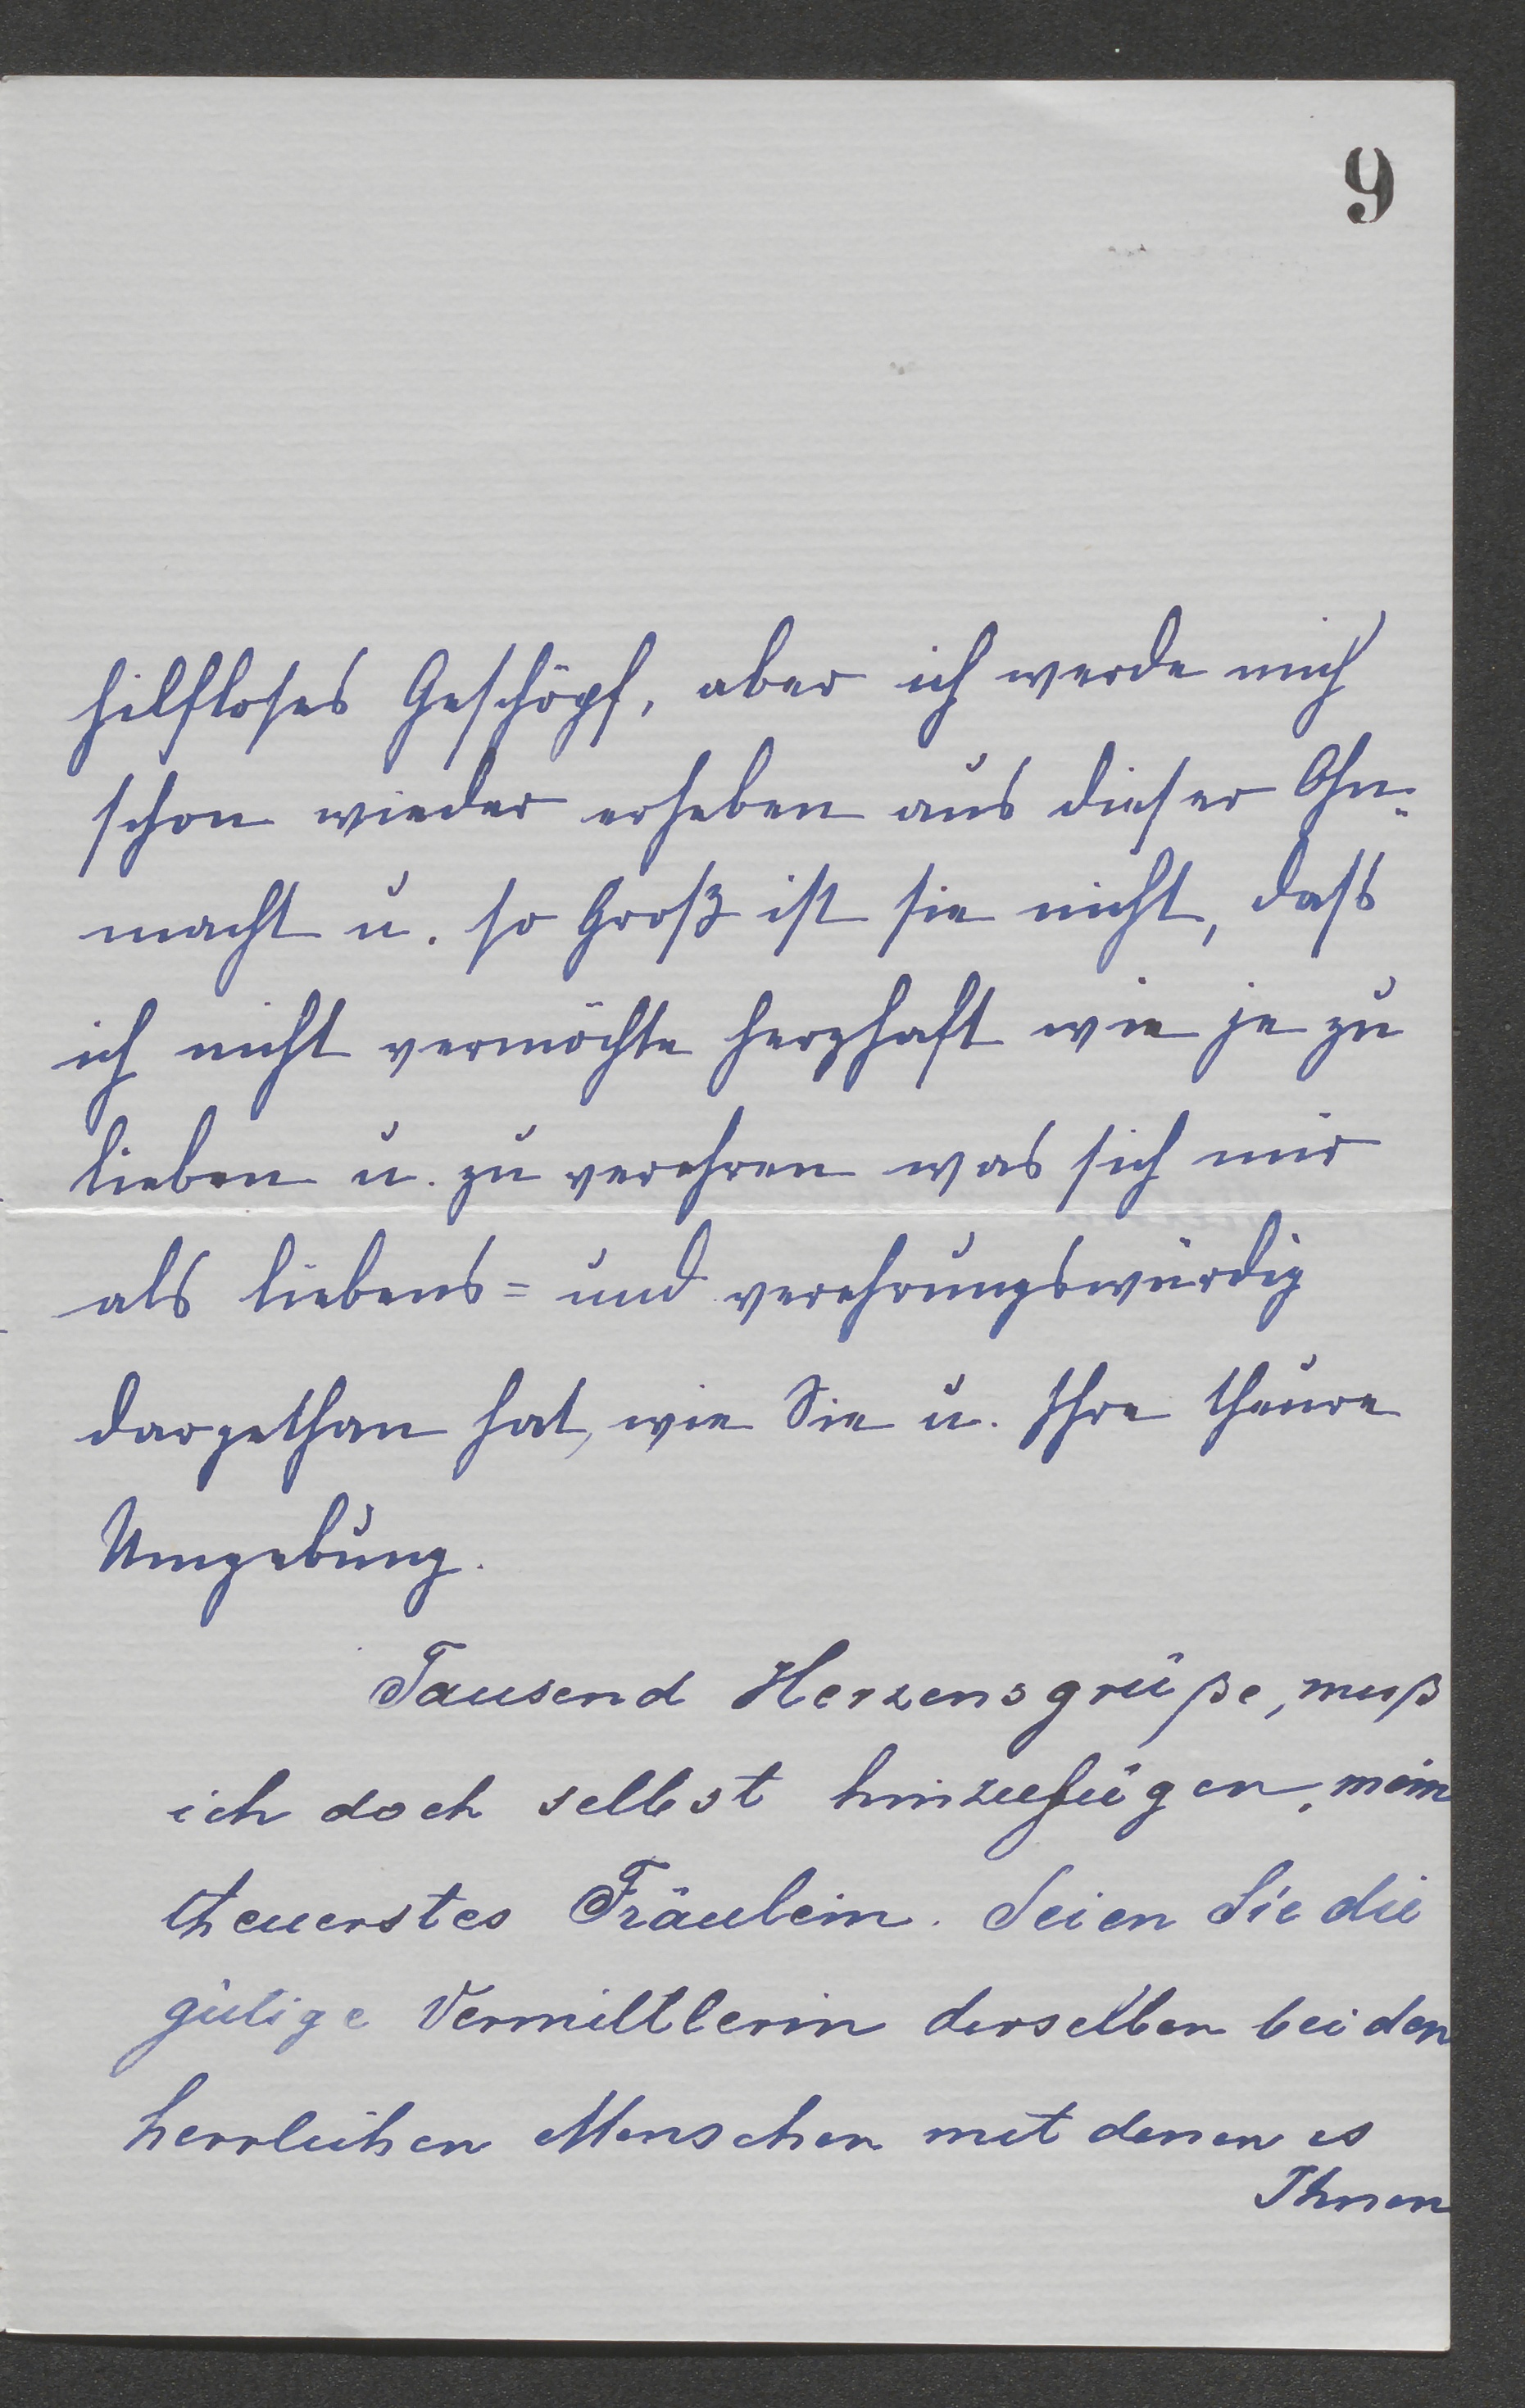 9
hilfloses Geschöpf, aber ich werde mich
schon wieder erheben aus dieser Ohn-
macht u. so Groß ist sie nicht, dass
ich nicht vermöchte herzhaft wie je zu
lieben u. zu verehren was sich mir
als liebens= und verehrungswürdig
dargethan hat, wie Sie u. Ihre theure
Umgebung.
Tausend Herzensgrüße, muß
ich doch selbst hinzufügen, mein
theuerstes Fräulein. Seien Sie die
gütige Vermittlerin derselben bei den
herrlichen Menschen mit denen es
Ihnen